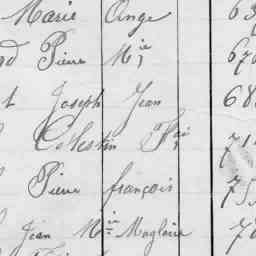 Marie Ange 63
rd Pierre Mie 670
t Joseph Jean 68
Celestin Fçois 71
Pierre françois 75
Jean Mie Magloire 78